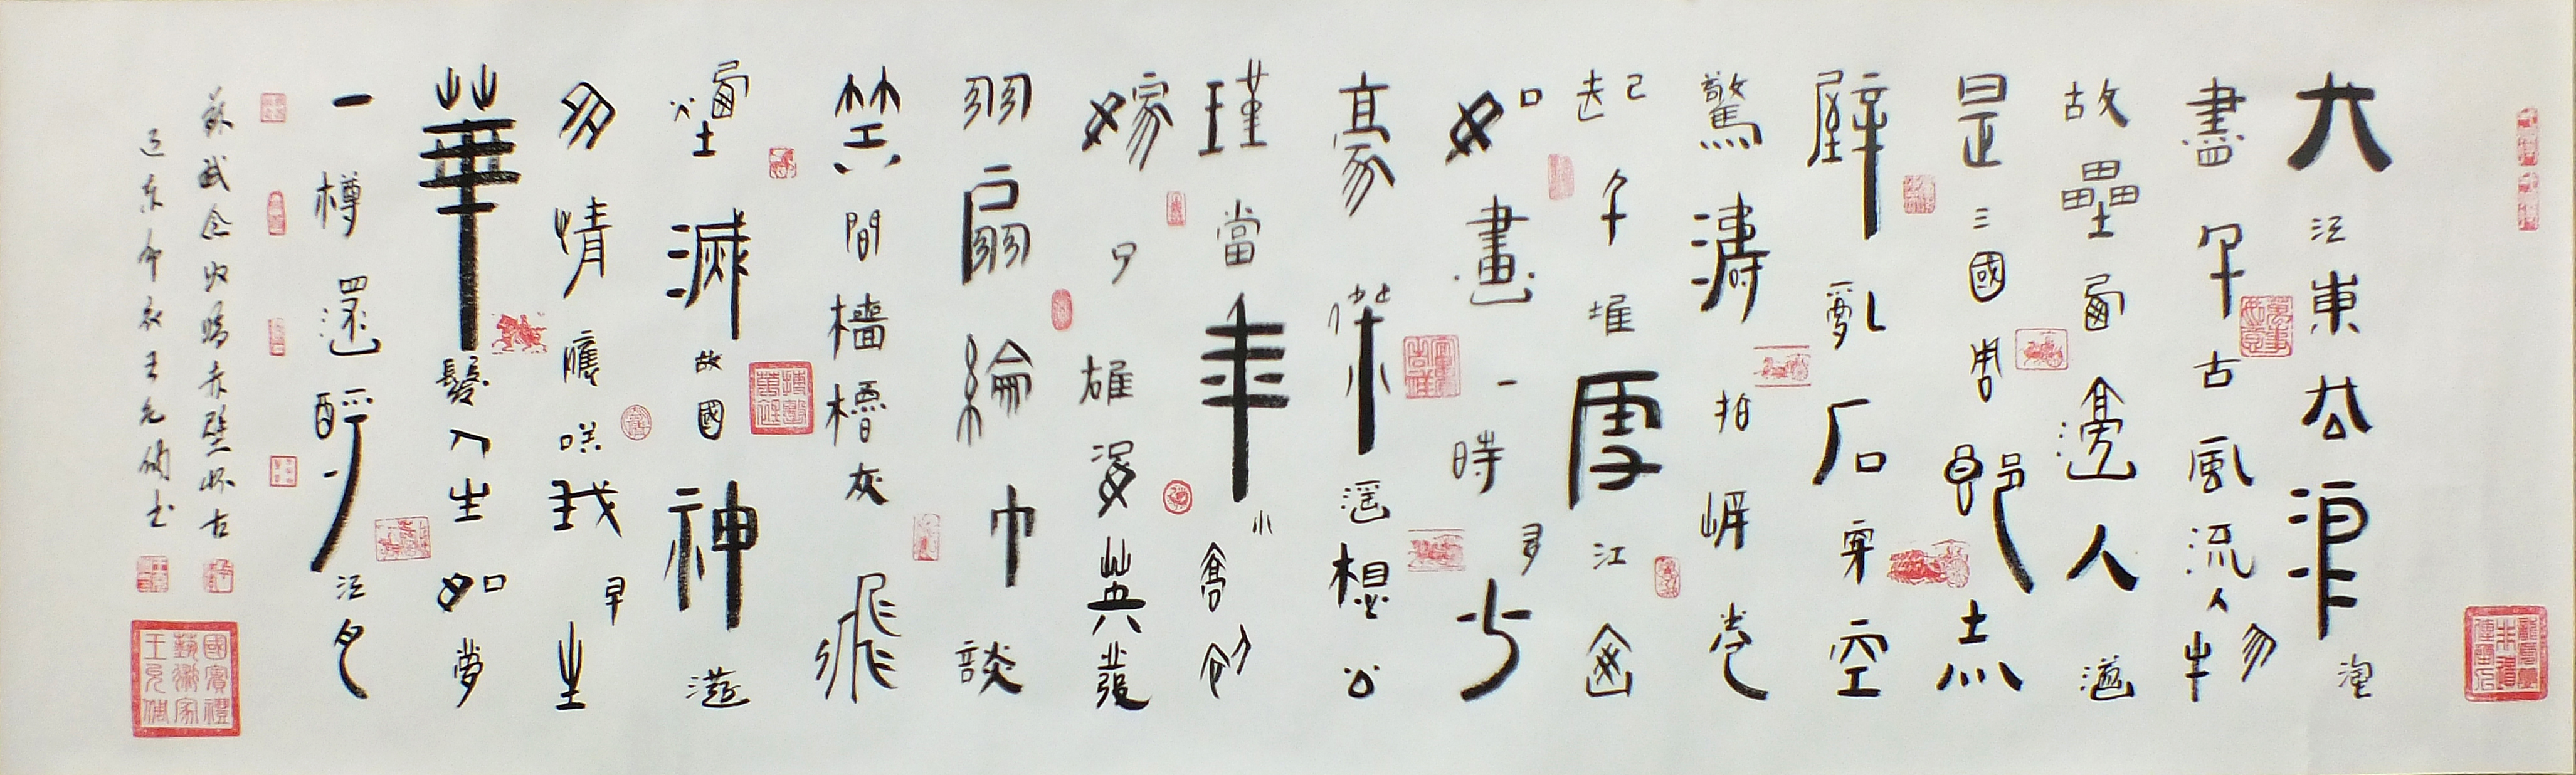 大江東去浪淘
盡千古風流人物
故壘西邊人道
是三國周郎赤
壁亂石穿空
驚濤拍岸卷
起千堆雪江山
如畫一時多少
豪傑遙想公
瑾當年小喬初
嫁了雄姿英發
羽扇綸巾談
笑間檣櫓灰飛
煙滅故國神遊
多情應笑我早生
華髮人生如夢
一樽還酹江月
蘇軾念奴嬌赤壁懷古
辽东布衣王书
國賓禮
藝術家
王